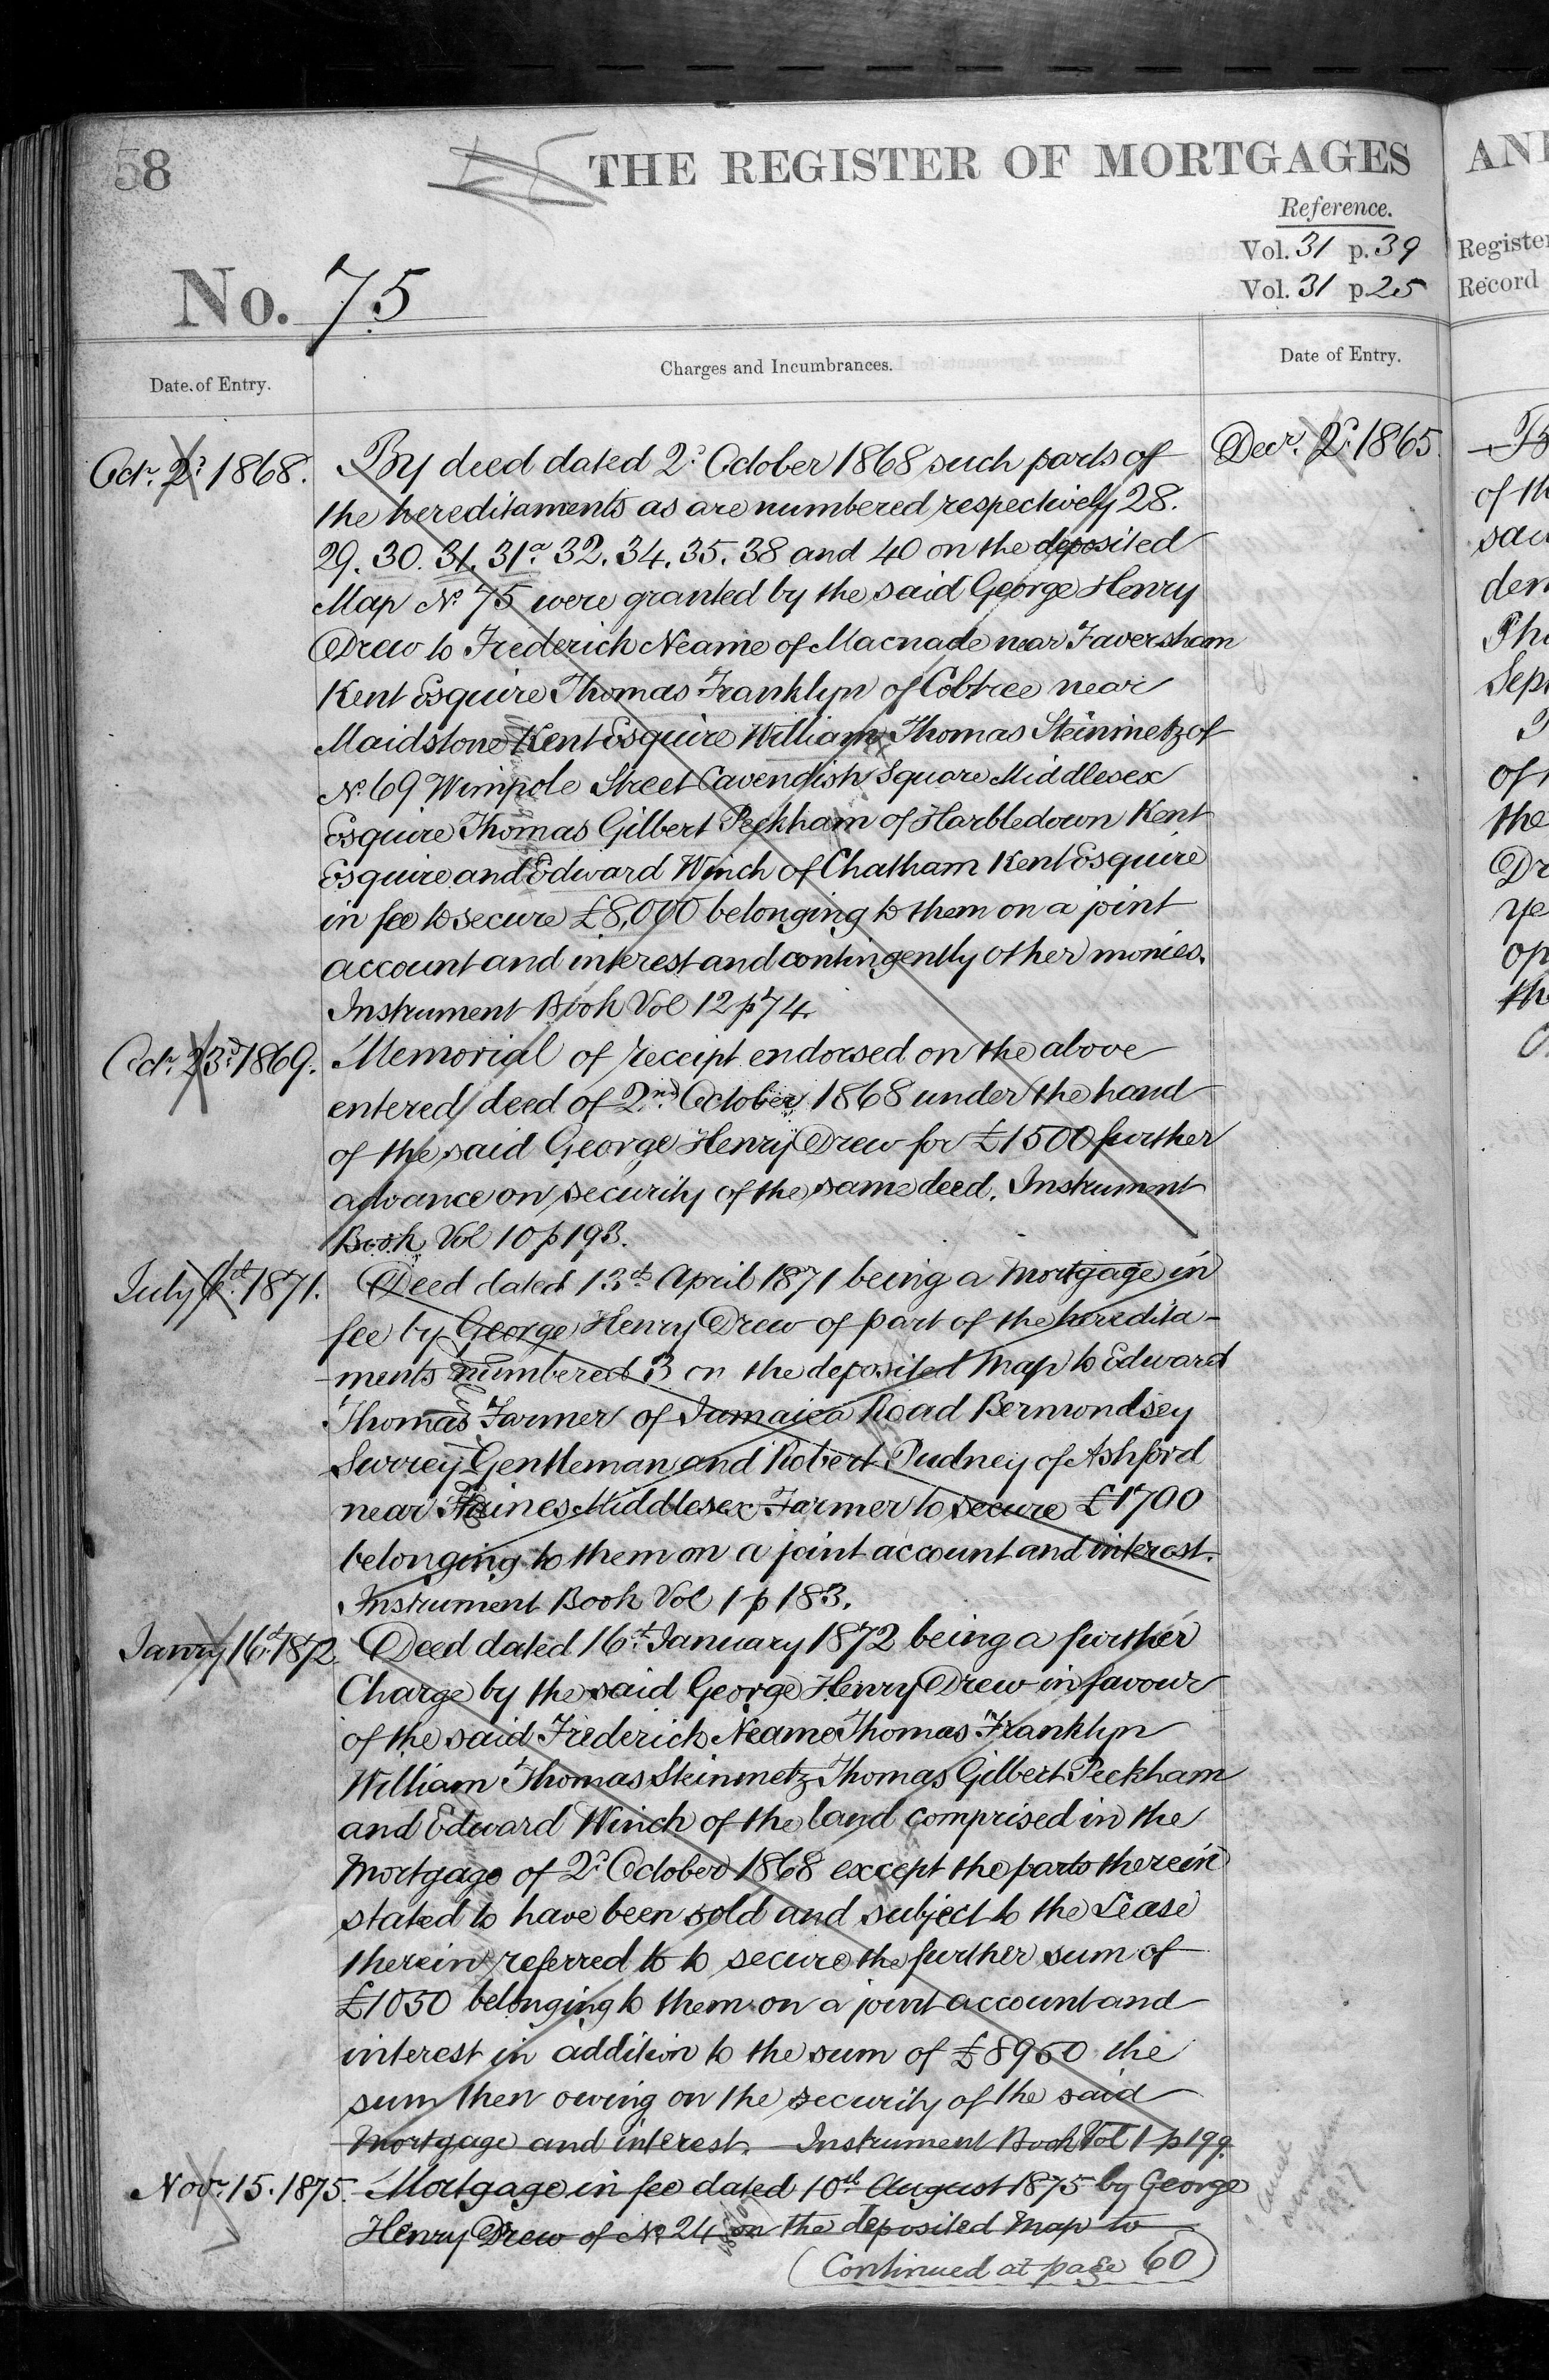 58
THE REGISTER OF MORTGAGES
AN
Reference.
Vol. 31 p. 39
Vol. 31 p 25
Register
Record
No. 75
Date of Entry.
Charges and Incumbrances.
Date of Entry.
Octr. 2d. 1868.
Decr. 2d. 1865.
By deed dated 2d. October 1868 such parts of
the hereditaments as are numbered respectively 28.
29. 30. 31. 31a. 32. 34. 35. 38 and 40 on the deposited
Map No. 75 were granted by the said George Henry
Drew to Frederick Neame of Macnade near Faversham
Kent Esquire Thomas Franklyn of Cobtree near
Maidstone Kent Esquire William Thomas Steinmetz of
No. 69 Wimpole Street Cavendish Square Middlesex
Esquire Thomas Gilbert Peckham of Harbledown Kent
Esquire and Edward Winch of Chatham Kent Esquire
in fee to secure £8,000 belonging to them on a joint
account and interest and contingently other monies.
Instrument Book Vol 12 p 74.
Octr. 23d. 1869.
Memorial of receipt endorsed on the above
entered deed of 2nd. October 1868 under the hand
of the said George Henry Drew for £1500 further
advance on security of the same deed. Instrument
Book Vol 10 p 193.
July 1871.
Deed dated 13th April 1871 being a Mortgage in
fee by George Henry Drew of part of the heredita-
ments numbered 3 on the deposited Map to Edward
Thomas Farmer of Jamaica Road Bermondsey
Surrey Gentleman and Robert Pudney of Ashford
near Staines Middlesex Farmer to secure £1700
belonging to them on a joint account and interest.
Instrument Book Vol 1 p 183.
Janry 16th. 1872.
Deed dated 16th. January 1872 being a further
Charge by the said George Henry Drew in favour
of the said Frederick Neame Thomas Franklyn
William Thomas Steinmetz Thomas Gilbert Peckham
and Edward Winch of the land comprised in the
Mortgage of 2d. October 1868 except the parts therein
stated to have been sold and subject to the Lease
therein referred to to secure the further sum of
£1050 belonging to them on a joint account and
interest in addition to the sum of £8950 the
sum then owing on the security of the said
Mortgage and interest. Instrument Book Vol 1 p 199.
Novr. 15. 1875.
Mortgage in fee dated 10th August 1875 by George
Henry Drew of No. 24 on the deposited Map to
(Continued at page 60)
of th
the
Dr
ye
op
th